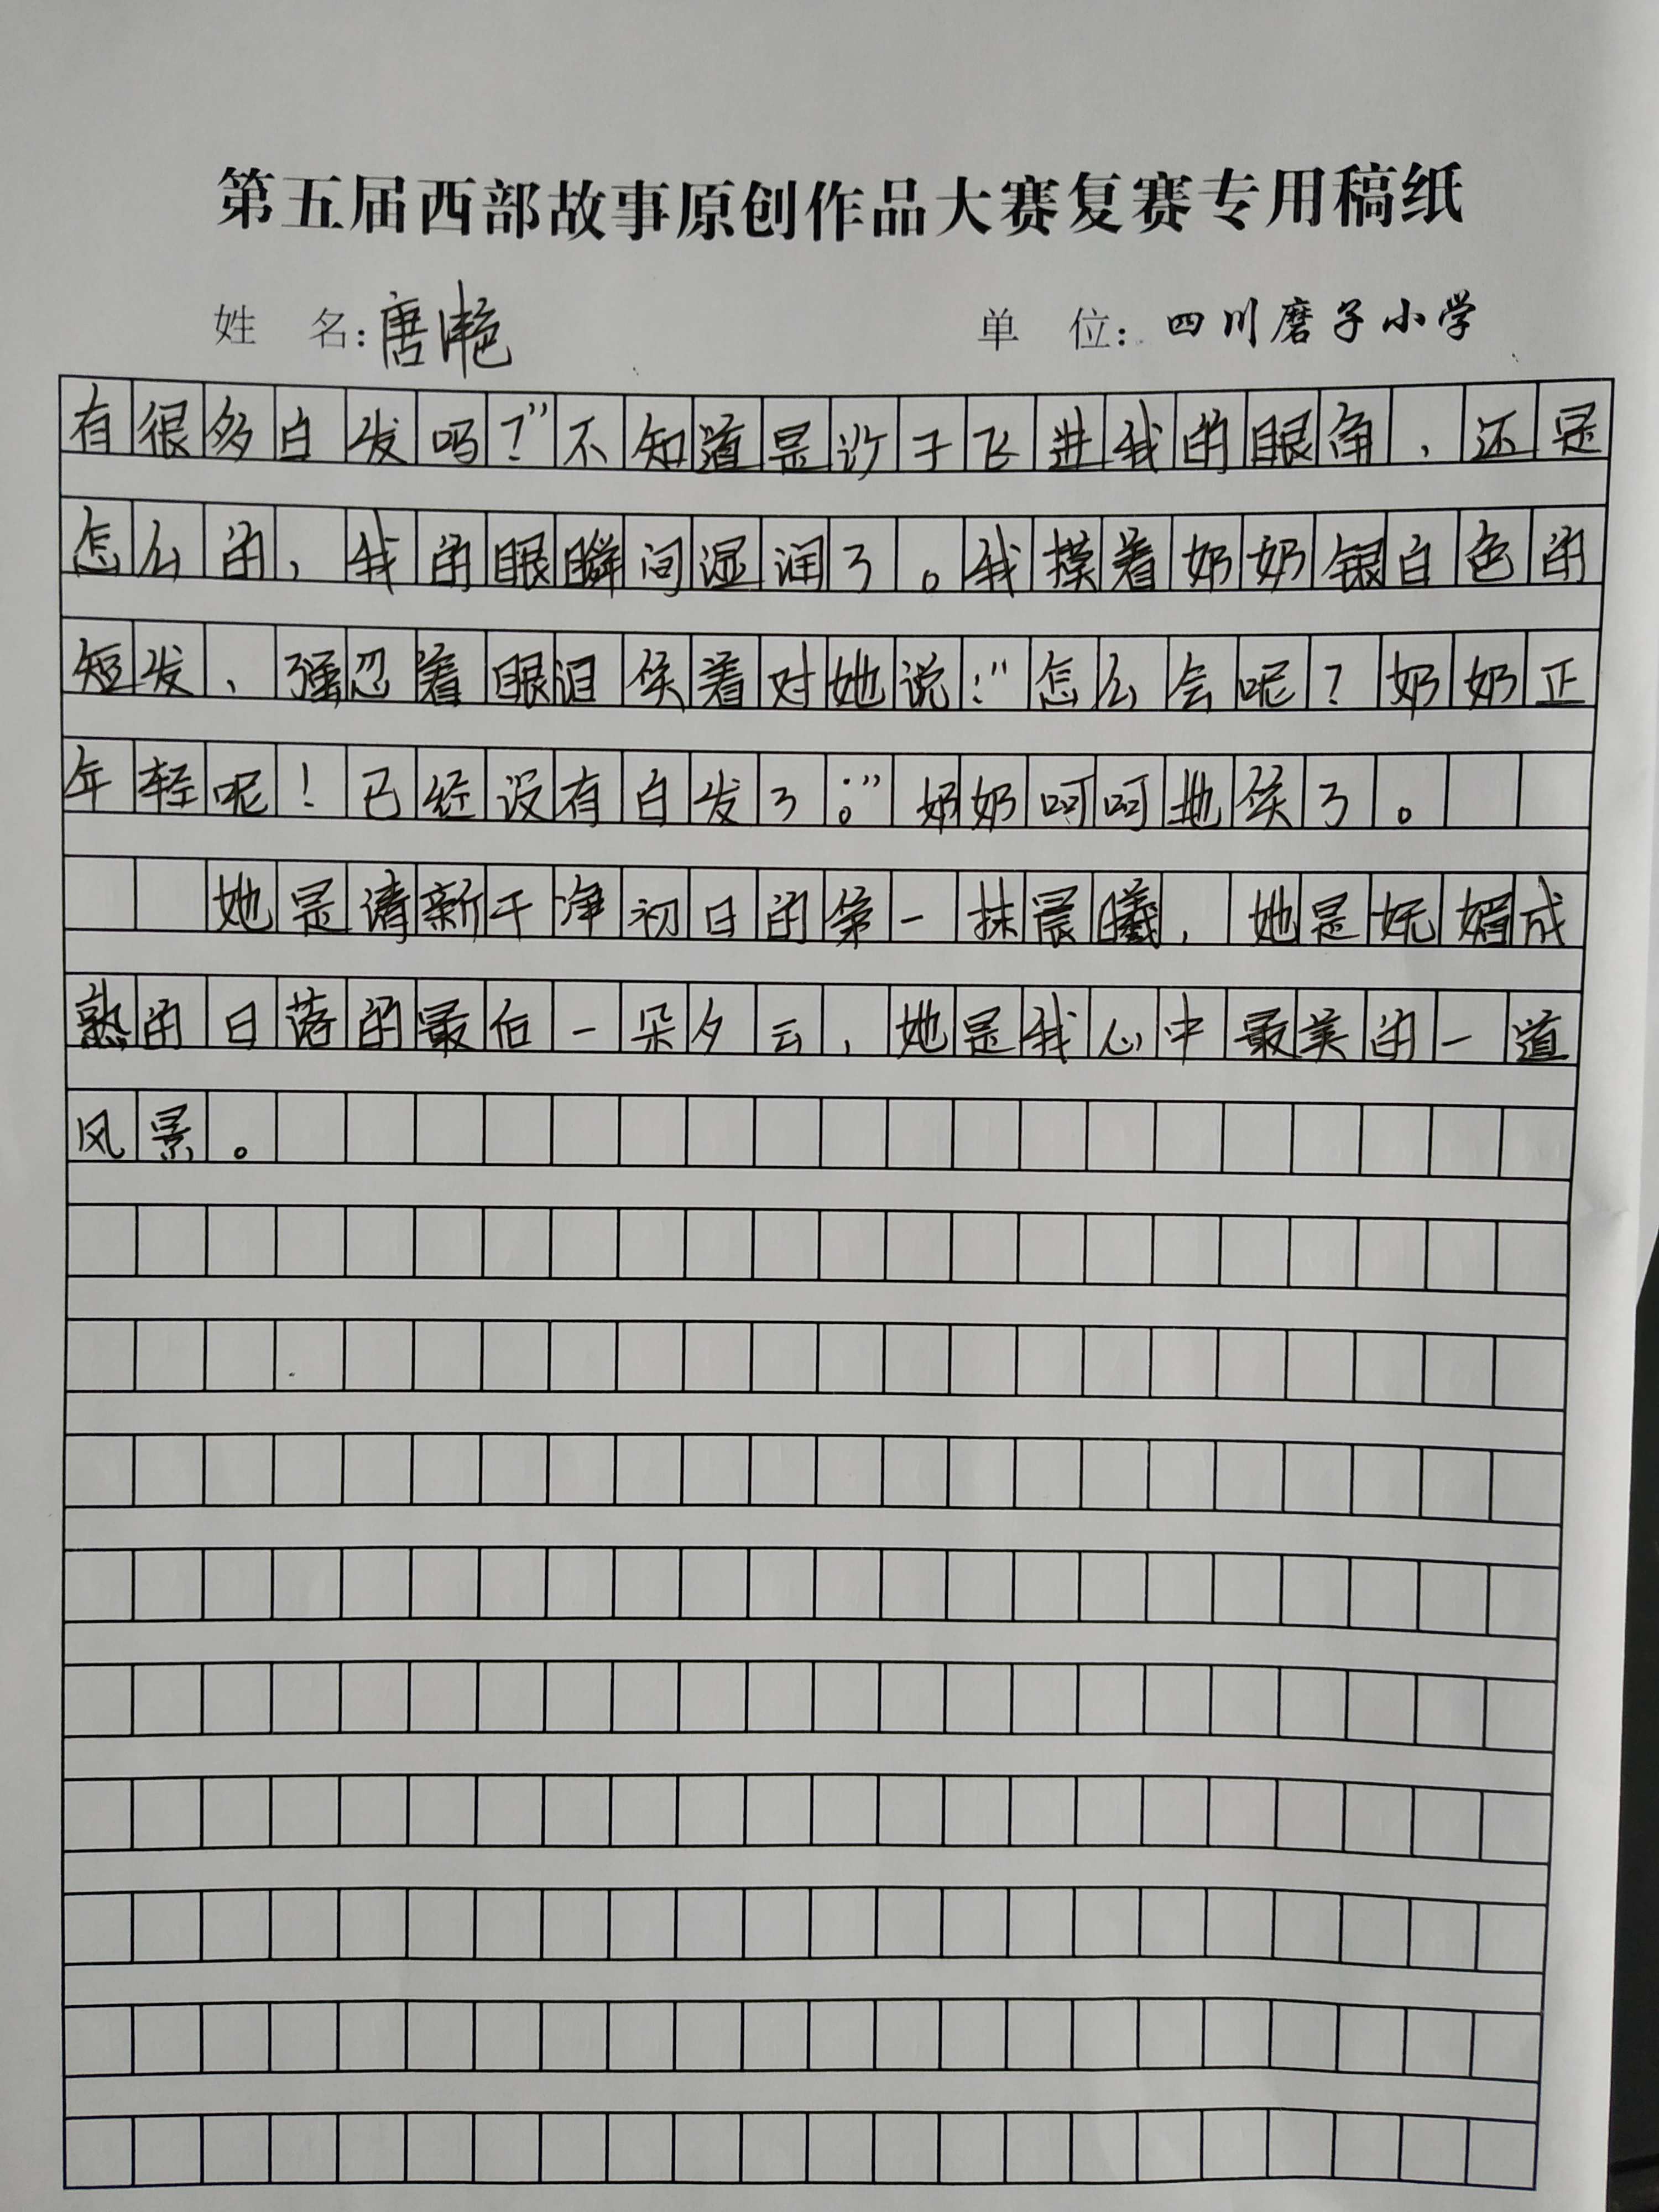 第五届西部故事原创作品大赛复赛专用稿纸
姓 名：唐滟 单 位：四川磨子小学
有很多白发吗？”不知道是沙子飞进我的眼角，还是
怎么的，我的眼瞬间湿润了。我摸着奶奶银白色的
短发，强忍着眼泪笑着对她说：“怎么会呢？奶奶正
年轻呢！已经没有白发了。”奶奶呵呵地笑了。
她是清新干净初日的第一抹晨曦，她是妩媚成
熟的日落的最后一朵夕云，她是我心中最美的一道
风景。